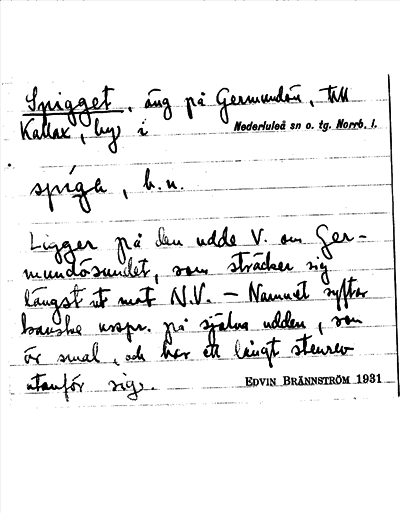 Spigget, äng på Germundön, till
Kallax, by i Nederluleå sn o. tg. Norrb. l.
spíga, b.n.
Ligger på den udde V. om Ger-
mundösundet, som sträcker sig
längst ut mot N.V. – Namnet syftar
kanske urspr. på själva udden, som
är smal, och har ett långt stenrev
utanför sig.
EDVIN BRÄNNSTRÖM 1931